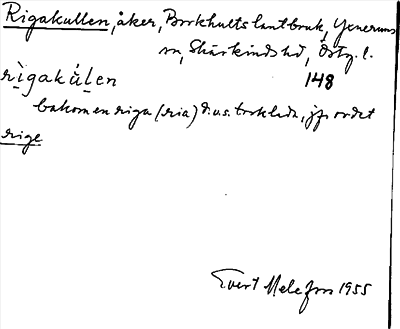 Rigakullen, åker, Borkhults lantbruk, Yxnerums
sn, Skärkinds hd, Östg. l.
rìgakúlen 148
bakom en riga (ria) d.v.s. torklada, jfr ordet
rige
Evert Melefors 1955